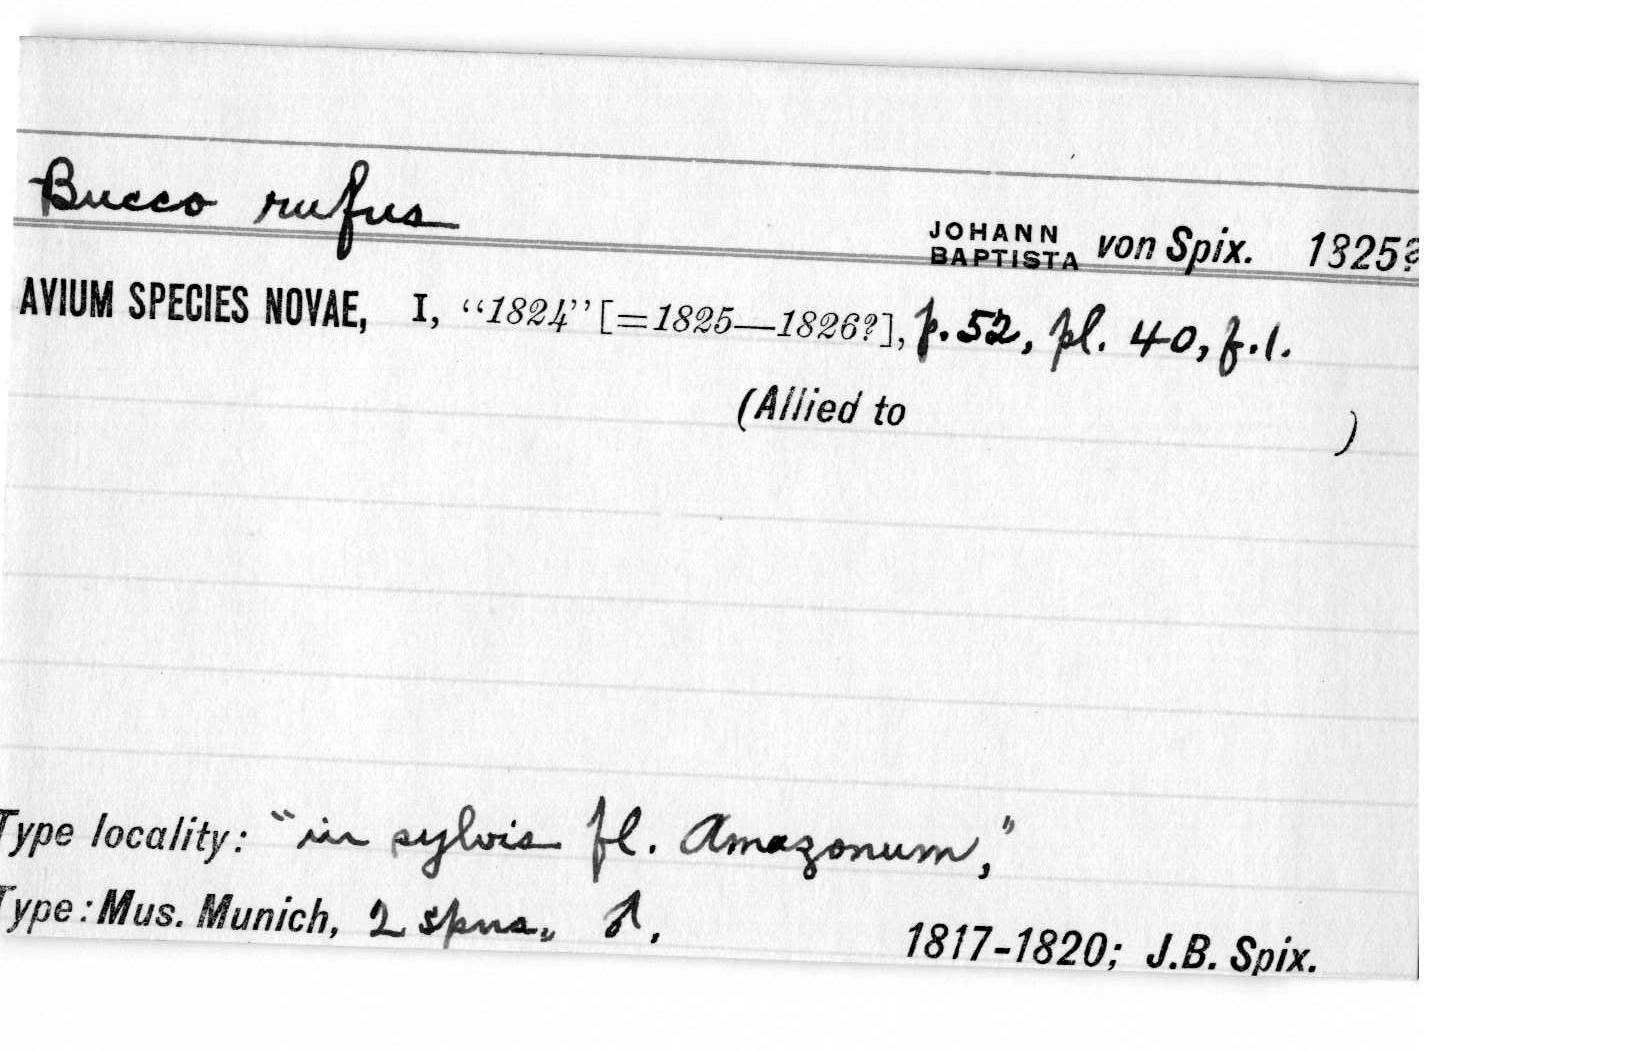 Bucco rufus
JOHANN BAPTISTA von Spix. 1825?
AVIUM SPECIES NOVAE, I, “1824” [=1825—1826?], p. 52, pl. 40, f. 1.
(Allied to )
Type locality: “in sylvis fl. Amazonum,”
Type: Mus. Munich, 2 spns., ♂,
1817-1820; J.B. Spix.